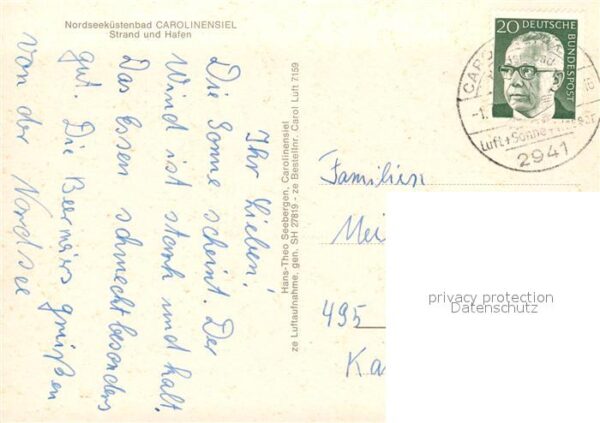 Nordseeküstenbad CAROLINENSIEL
Strand und Hafen
Ihr Lieben!
Die Sonne scheint. Der
Wind ist stark und kalt.
Das Essen schmeckt besonders
gut. Die Beermairs grüßen
von der Nordsee
Hans-Theo Seebergen, Carolinensiel
ze Luftaufnahme, gen. SH 27819 - ze Bestellnr. Carol Luft 7159
20 DEUTSCHE
BUNDESPOST
CARO
-1.
Luft+Sonne+
2941
Familien
Mei
495
Ka
privacy protection
Datenschutz